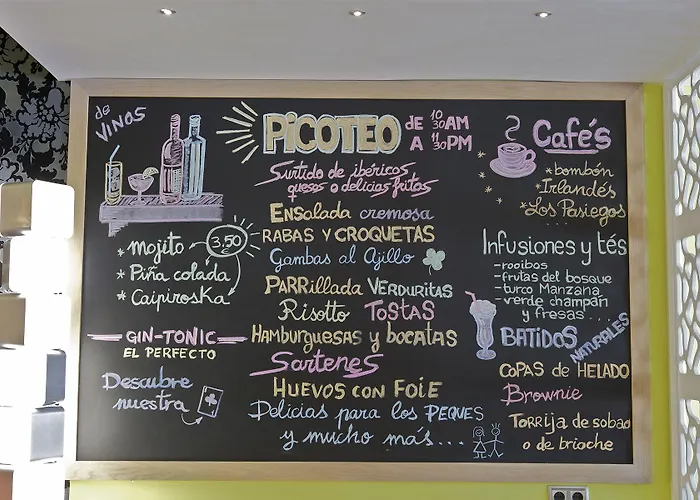 de
VINOS
* mojito
3,50
* Piña colada
* CaipirosKa
GIN-TONIC
EL PERFECTO
Descubre
nuestra
PiCOTEO DE 10 30 AM
A 11 30 PM
Surtido de ibéricos
quesos o delicias fritas
ENsalada cremosa
RABAS Y CROQUETAS
Gambas al Ajillo
PARRillada VERDURITAS
Risotto TOSTAS
Hamburguesas y bocatas
Sartenes
HUEVOS CON FOIE
Delicias para los PEQUES
y mucho más...
Cafés
* bombón
* Irlandés
* Los Pasiegos
Infusiones y tés
- rooibos
- frutas del bosque
- turco Manzana
- verde champán
y fresas...
BATIDOS
NATURALES
COPAS de HELADO
Brownie
TORRIJA de sobao
o de brioche